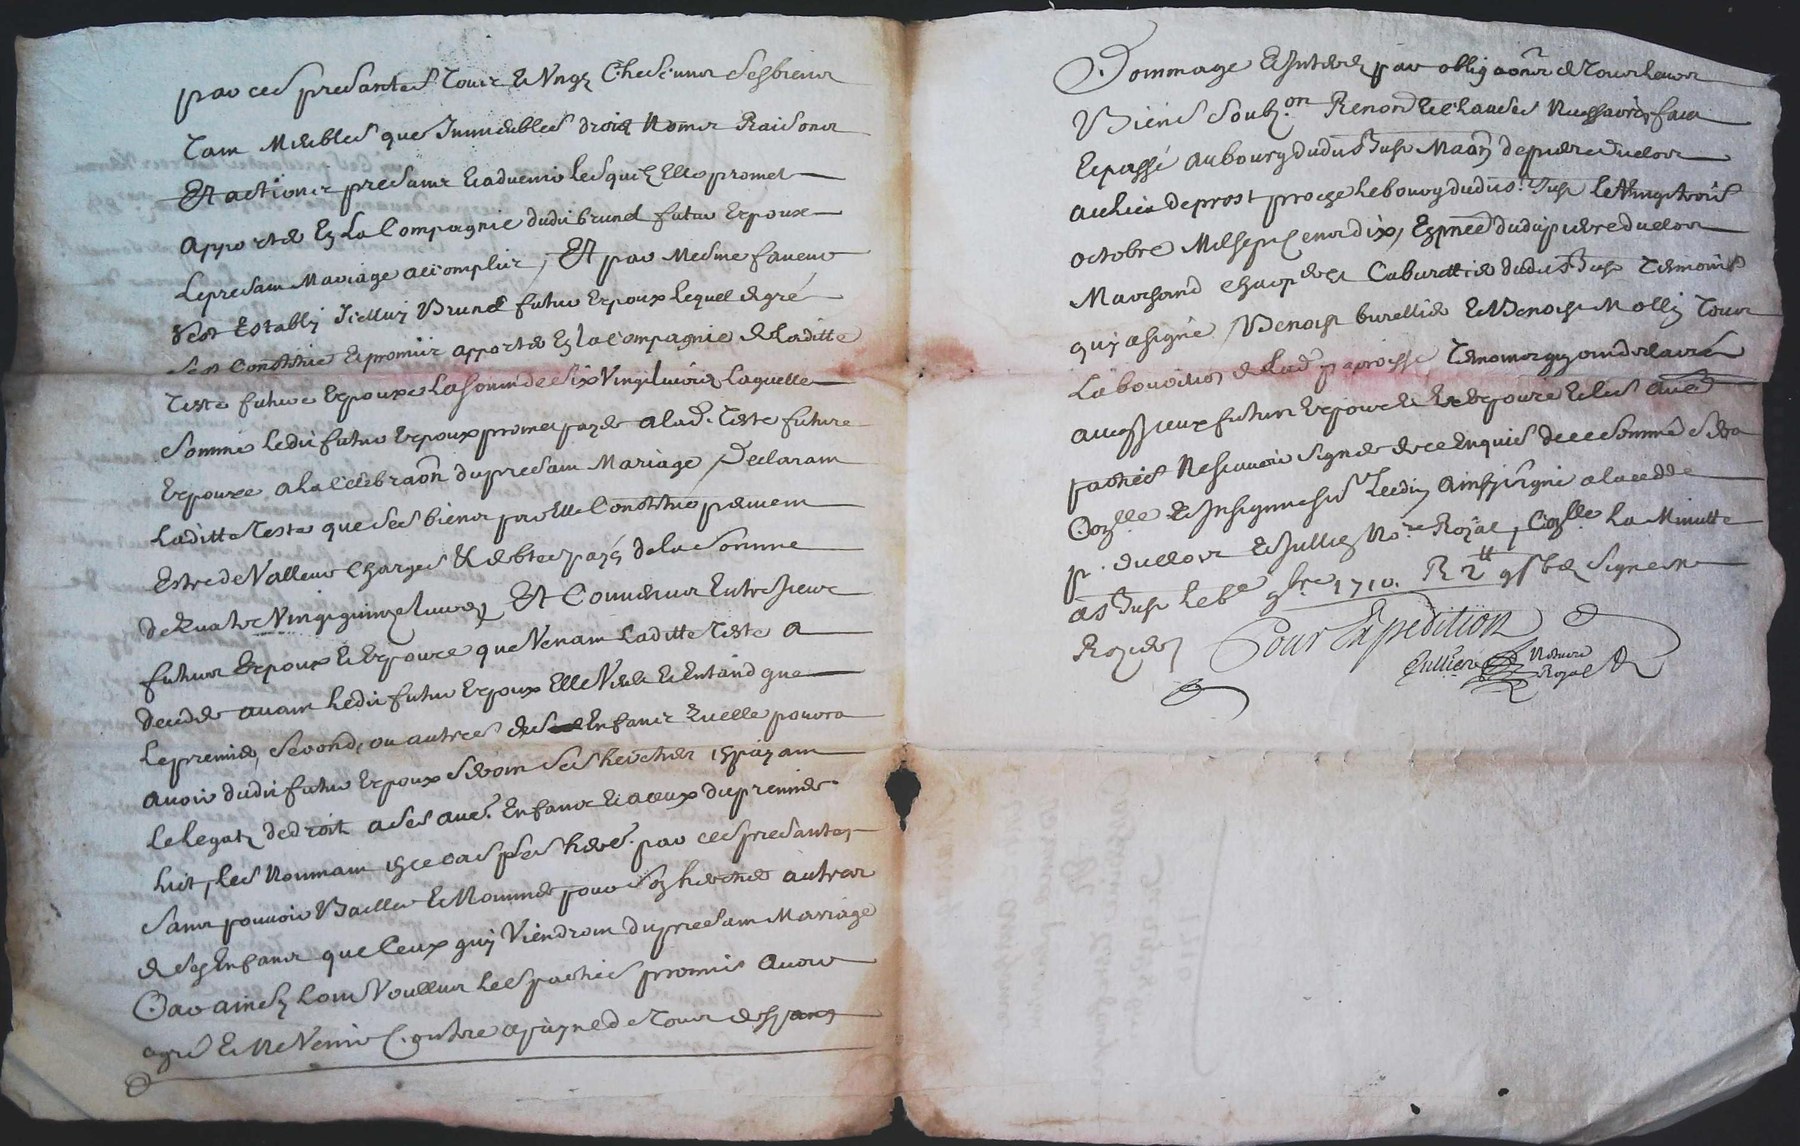 par ces presantes Tous Et Ungs Chescuns Ses biens
Tam Meubles que Immeubles droits Noms Raisons
Et actions presans Et advenir lesquels Elle promet
apporter En La Compagnie dudit brunel futur Espoux
Le presam Mariage accomplir, Et par Mesme faveur
s'est Estably Icelluy Brunel futur Espoux lequel de gré
Constitue Et promis apporter En la Compagnie de Laditte
Teste future Espouxe La Somme de Six Vingt livres Laquelle
Somme Ledit futur Espoux promet payer a lad. Teste future
Espouxe a la Celebraõn du presam Mariage, Declaram
Laditte Teste que Ses biens par Elle Constitués peuvent
Estre de Valleur Charges Et debtes payés de la Somme
de Quatre Vingt quinze livres, Et Convenu Entre Iceux
futurs Espoux Et Espouxe que Venam Laditte Teste a
deceder avam Ledit futur Espoux Elle Veut Et Entand que
Le premier, Second, ou autres des Enfans Quelle pourra
avoir dudit futur Espoux Seront Ses heritiers En payam
Le legat de droit a Ses au.es Enfans Et a ceux du premier
Lict, Les Nommam En ce cas Ses her.s par ces presantes
Sans pouvoir Bailler Et Nommer pour Son heritier autres
de Ses Enfans que Ceux quy Viendrom du presam Mariage
Car ainsy Lont Voullus Les parties promis avoir
agreé Et Ne Venir Contre a payne de Tous despans
Dommage Et Interets par obligaõns de Tous Leurs
Biens Soubz.on Renonc Et Clauses Necessaires, faict
Et passé au bourg dudit St Just Maison de pierre Duclos
au lieu de prost proche le bourg dudit St. Just le Vingt trois
octobre Mil Sept Cens dix, En pñce dudit pierre Duclos
Marchand Charp.er Et Cabarettier dudit St Just Tesmoins
quy a signé, Benoist burellier Et Benoist Molliy Tous
Laboureurs de lad. parroisse, Tesmoins quy ont declaré
avec Iceux futurs Espoux Et Espouxe Et les au.es
parties Ne Scavoir Signer de ce Enquis de ce Sommé Sera
Con.lle Et Insignué Suiv. Ledit, ainsy signé a la cedde
p. duclos Et Jullien No.re Royal, Con.lle La Minutte
a St Just le 6e 9bre 1710. R 2 tt Signé
Royer
Pour Expedition
Jullien Notaire
Royal